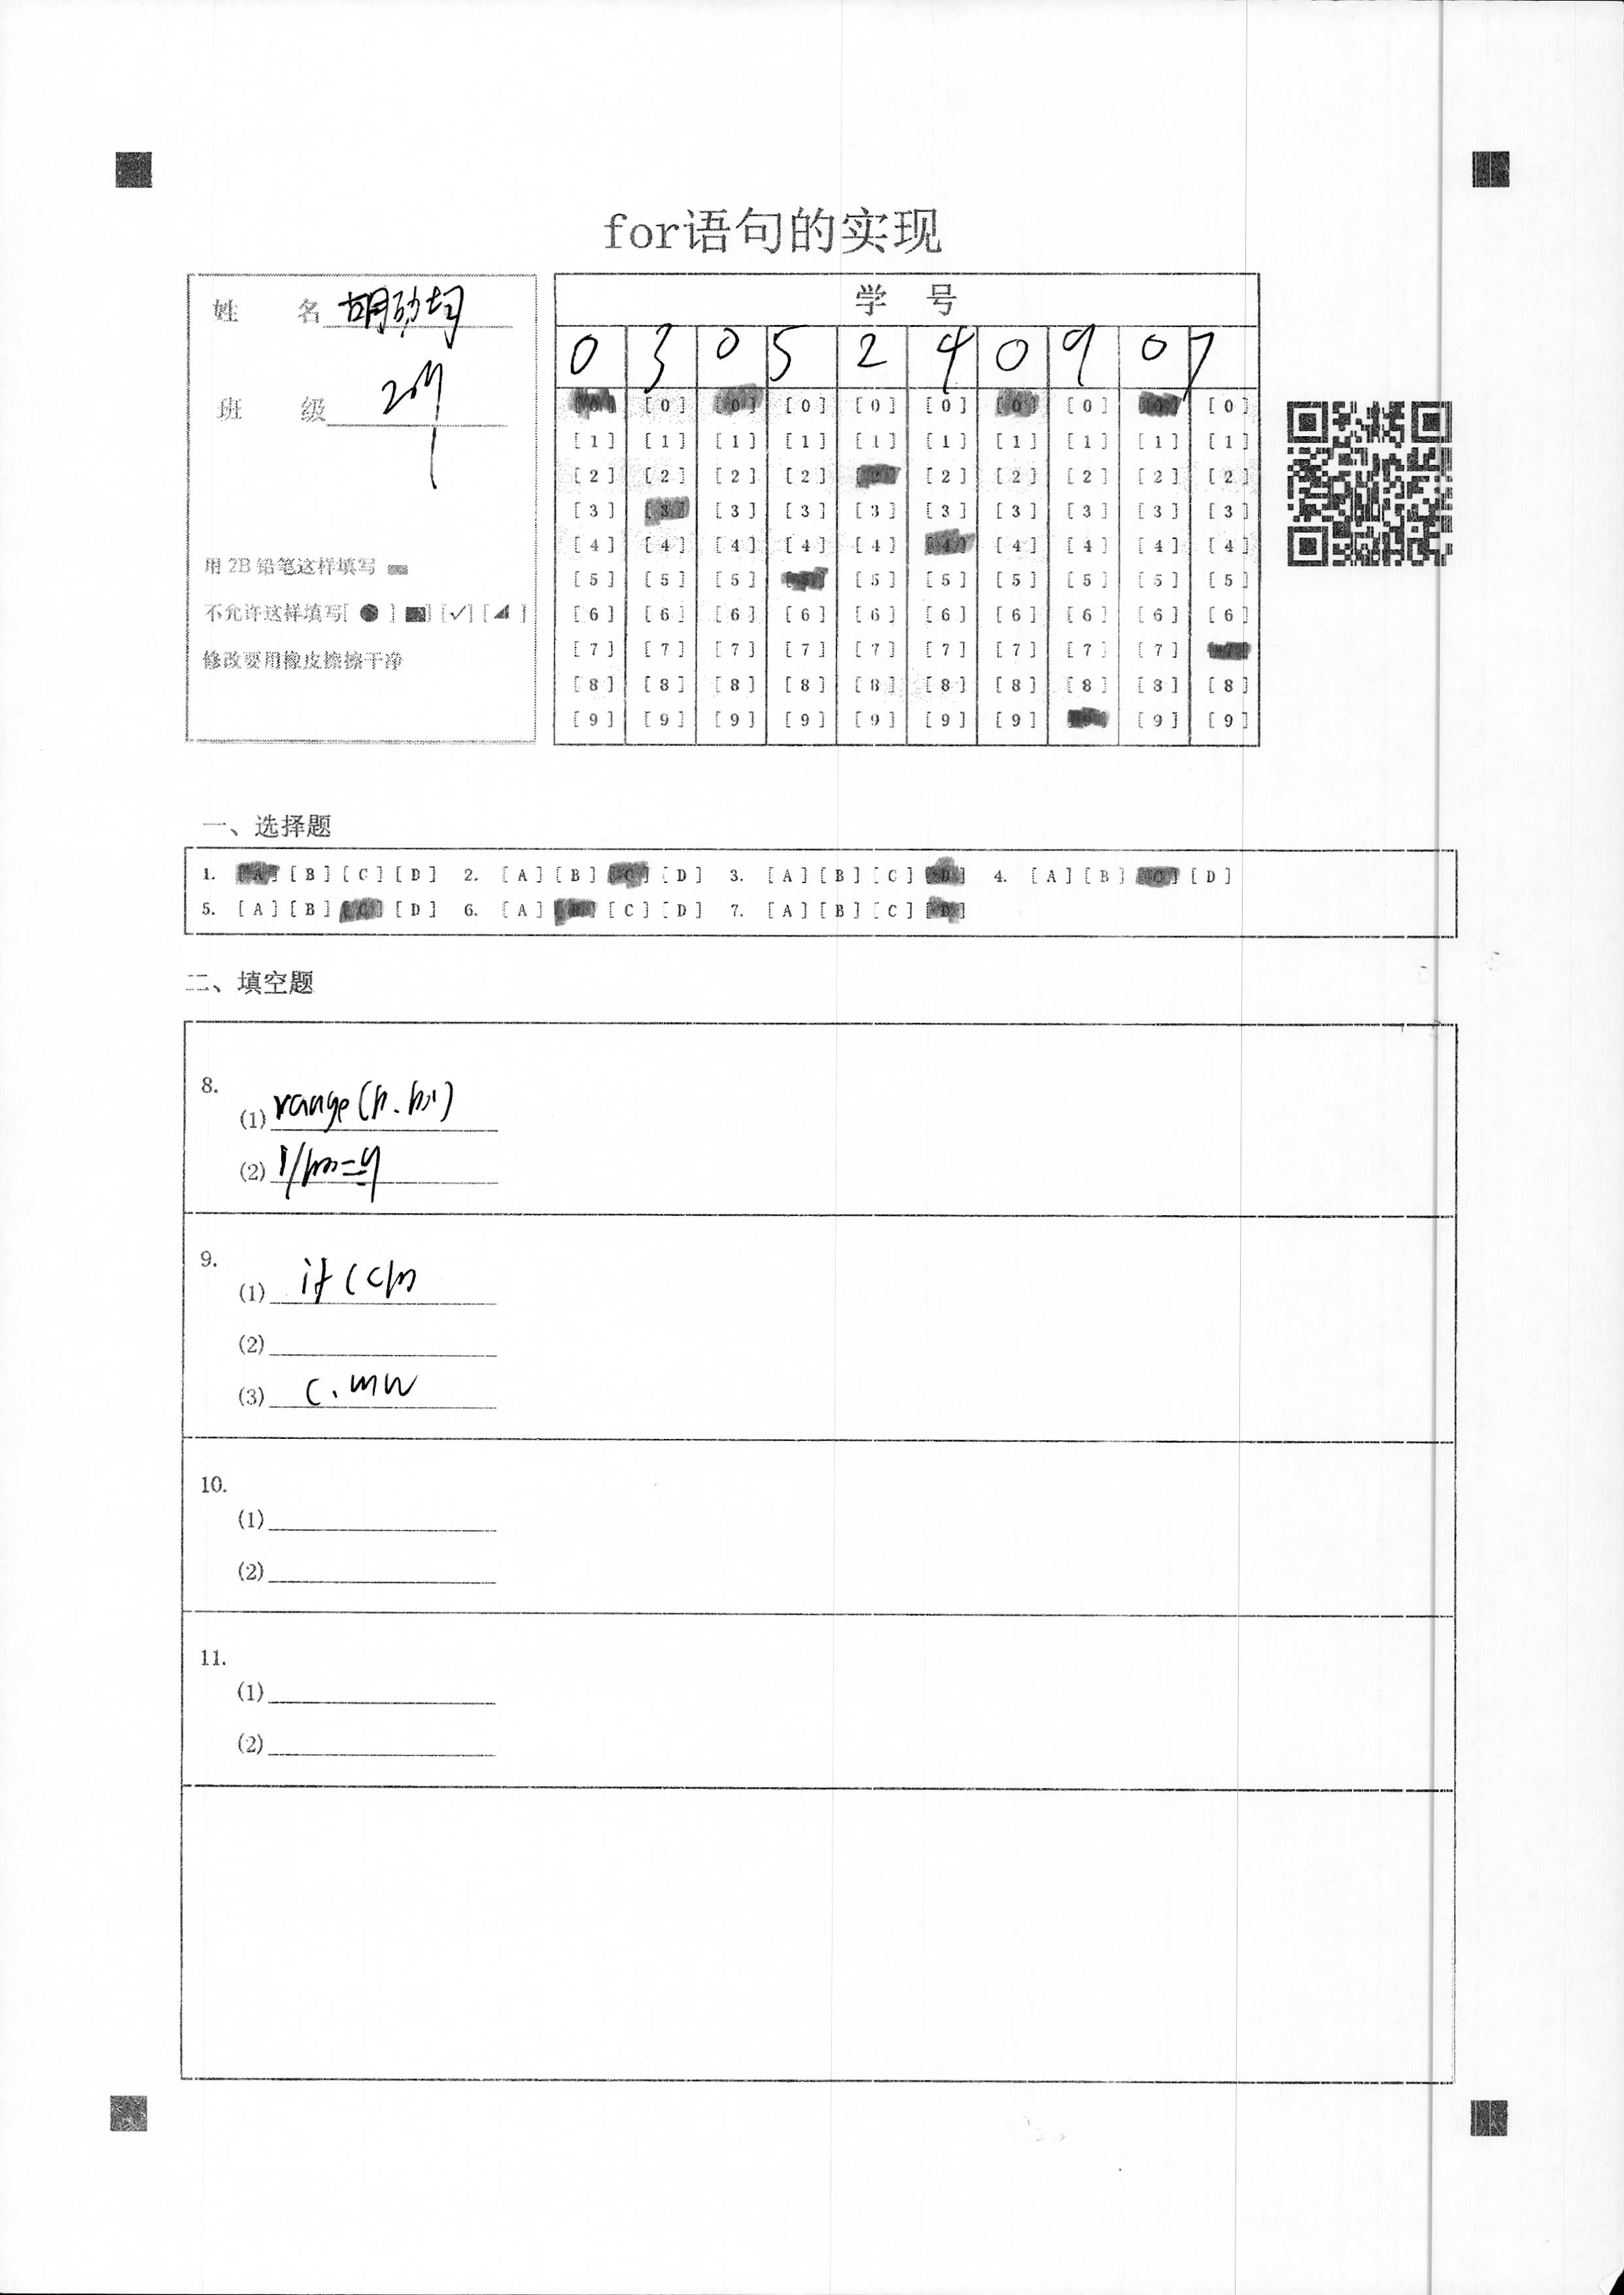 for语句的实现
姓 名
班 级
用 2B 铅笔这样填写
不允许这样填写[ ● ] [■] [✓] [◢ ]
修改要用橡皮擦擦干净
学 号
0 3 0 5 2 4 0 9 0 7
[0] [0] [0] [0] [0] [0] [0] [0] [0] [0]
[1] [1] [1] [1] [1] [1] [1] [1] [1] [1]
[2] [2] [2] [2] [2] [2] [2] [2] [2] [2]
[3] [3] [3] [3] [3] [3] [3] [3] [3] [3]
[4] [4] [4] [4] [4] [4] [4] [4] [4] [4]
[5] [5] [5] [5] [5] [5] [5] [5] [5] [5]
[6] [6] [6] [6] [6] [6] [6] [6] [6] [6]
[7] [7] [7] [7] [7] [7] [7] [7] [7] [7]
[8] [8] [8] [8] [8] [8] [8] [8] [8] [8]
[9] [9] [9] [9] [9] [9] [9] [9] [9] [9]
一、选择题
1. [A] [B] [C] [D] 2. [A] [B] [C] [D] 3. [A] [B] [C] [D] 4. [A] [B] [C] [D]
5. [A] [B] [C] [D] 6. [A] [B] [C] [D] 7. [A] [B] [C] [D]
二、填空题
8.
(1)
(2)
9.
(1) if
(2)
(3)
10.
(1)
(2)
11.
(1)
(2)